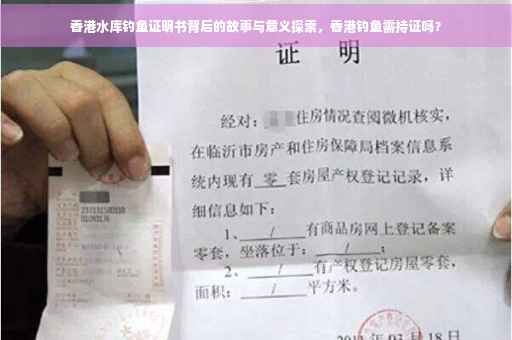 香港水库钓鱼证明书背后的故事与意义探索，香港钓鱼需持证吗？
证 明
经对：住房情况查阅微机核实，
在临沂市房产和住房保障局档案信息系
统内现有 零 套房屋产权登记记录，详
细信息如下：
1、 / 有商品房网上登记备案
零套，坐落位于： / ；
2、 / 有产权登记房屋零套，
面积： / 平方米。
03 月 18 日